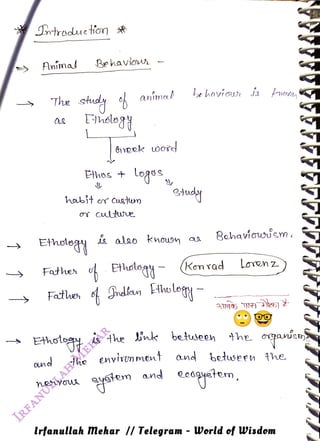 * Introduction *
⇒ Animal Behaviour -
→ The study of animal behaviour is known
as Ethology
Greek word
Ethos + Logos
habit or Custum
Study
or culture
→ Ethology is also known as Behaviourism.
→ Father of Ethology - Konrad Lorenz
→ Father of Indian Ethology -
आपके पास मौका है
→ Ethology is the link between the organism
and the environment and between the
nervous system and ecosystem.
IRFANULLAH MEHAR
Irfanullah Mehar // Telegram - World of Wisdom